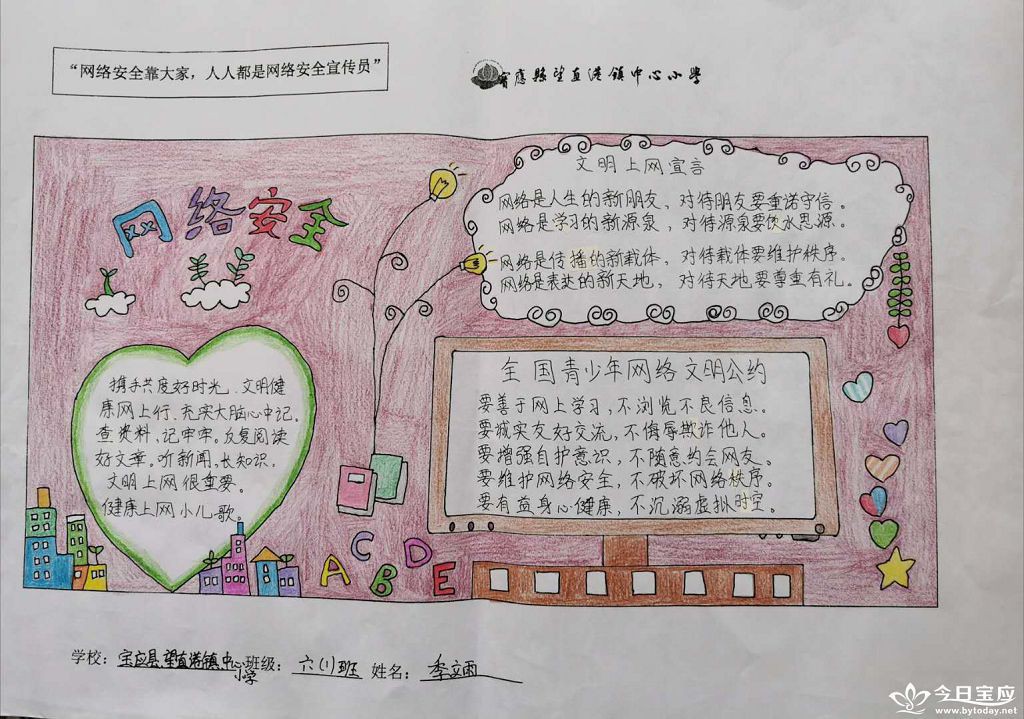 “网络安全靠大家，人人都是网络安全宣传员”
宝應縣望直港镇中心小學
网络安全
文明上网宣言
网络是人生的新朋友，对待朋友要重诺守信。
网络是学习的新源泉，对待源泉要饮水思源。
网络是传播的新载体，对待载体要维护秩序。
网络是表达的新天地，对待天地要尊重有礼。
携手共度好时光、文明健
康网上行、充实大脑心中记。
查资料、记牢牢。反复阅读
好文章。听新闻，长知识，
文明上网很重要。
健康上网小儿歌。
全国青少年网络文明公约
要善于网上学习，不浏览不良信息。
要诚实友好交流，不侮辱欺诈他人。
要增强自护意识，不随意约会网友。
要维护网络安全，不破坏网络秩序。
要有益身心健康，不沉溺虚拟时空。
A B C D E
学校：宝应县望直港镇中心小学 班级：六(1)班 姓名：季立雨
今日宝应
www.bytoday.net